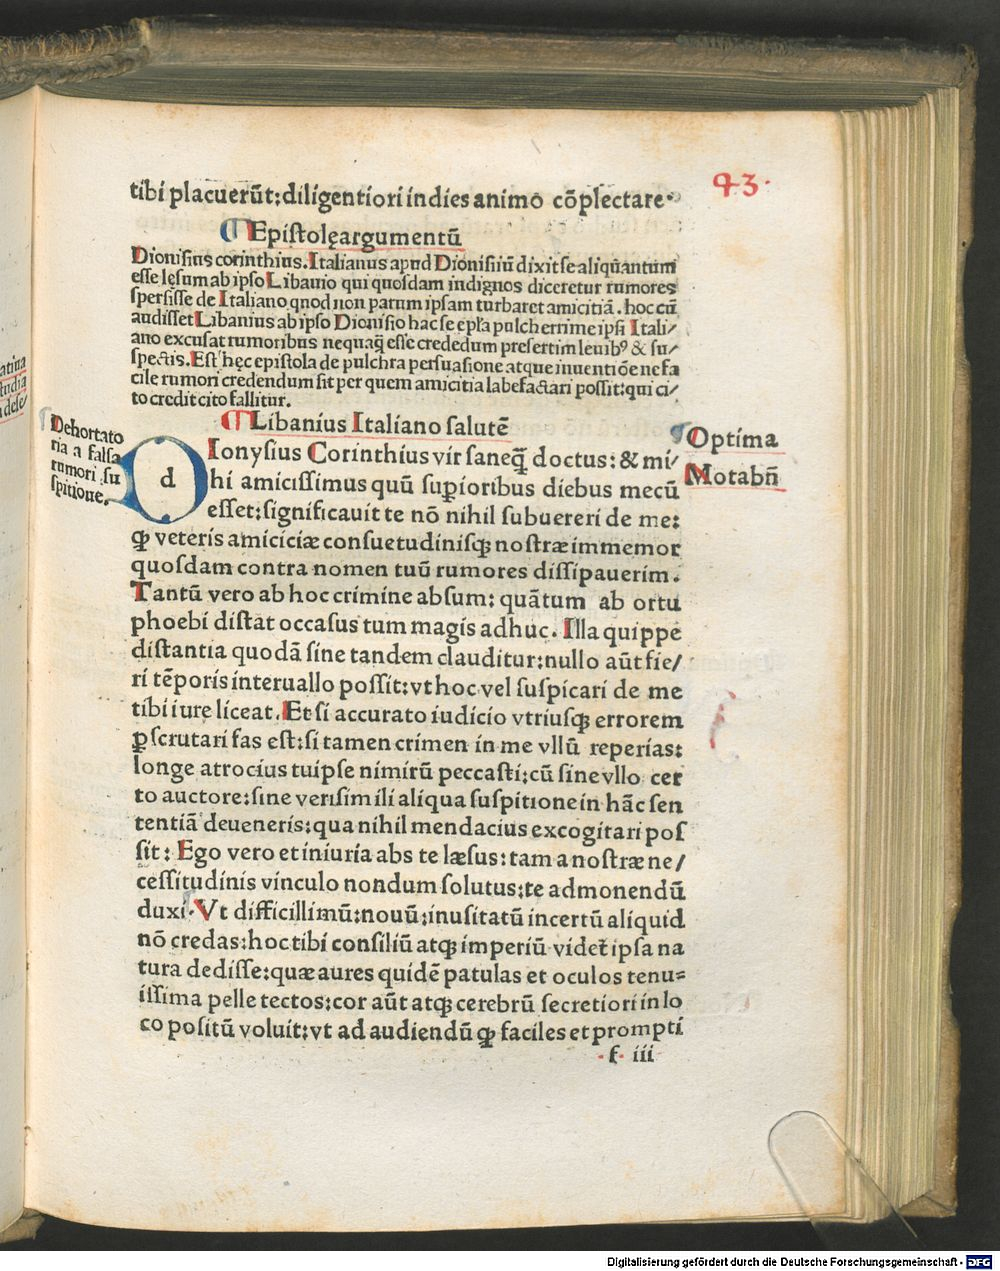 43.
tibi placuerūt: diligentiori indies animo cōplectare.
Epistolę argumentū
Dionisius corinthius. Italianus apud Dionisiiū dixit se aliquantum
esse lęsum ab ipso Libanio qui quosdam indignos diceretur rumores
spersisse de Italiano quod non parum ipsam turbaret amicitiā. hoc cū
audisset Libanius ab ipso Dionisio hac se epl̄a pulcherrime ipsi Itali/
ano excusat rumoribus nequaq̄ esse crededum presertim leuibꝰ & su/
spectis. Est hęc epistola de pulchra persuasione atque inuentiōe ne fa
cile rumori credendum sit per quem amicitia labefactari possit: qui ci/
to credit cito fallitur.
Libanius Italiano salutē
Dehortato
ria a falsa
rumori su
spitione.
Optima
Notabn̄
d Ionysius Corinthius vir saneq̄ doctus: & mi/
hi amicissimus quū superioribus diebus mecū
esset: significauit te nō nihil subuereri de me:
ꝙ veteris amiciciæ consuetudinisqꝫ nostræ immemor
quosdam contra nomen tuū rumores dissipauerim.
Tantū vero ab hoc crimine absum: quātum ab ortu
phoebi distat occasus tum magis adhuc. Illa quippe
distantia quodā sine tandem clauditur: nullo aūt fie/
ri tēporis interuallo possit: vt hoc vel suspicari de me
tibi iure liceat. Et si accurato iudicio vtriusqꝫ errorem
ꝑscrutari fas est: si tamen crimen in me vllū reperias:
longe atrocius tuipse nimirū peccasti: cū sine vllo cer
to auctore: sine verisimili aliqua suspitione in hāc sen
tentiā deueneris: qua nihil mendacius excogitari pos
sit: Ego vero et iniuria abs te læsus: tam a nostræ ne/
cessitudinis vinculo nondum solutus: te admonendū
duxi. Vt difficillimū: nouū: inusitatū incertū aliquid
nō credas: hoc tibi consiliū atqꝫ imperiū videt̄ ipsa na
tura dedisse: quæ aures quidē patulas et oculos tenu=
issima pelle tectos: cor aūt atqꝫ cerebrū secretiori in lo
co positū voluit: vt ad audiendū ꝙ faciles et prompti
f iii
atina
studia
dese/
Digitalisierung gefördert durch die Deutsche Forschungsgemeinschaft - DFG